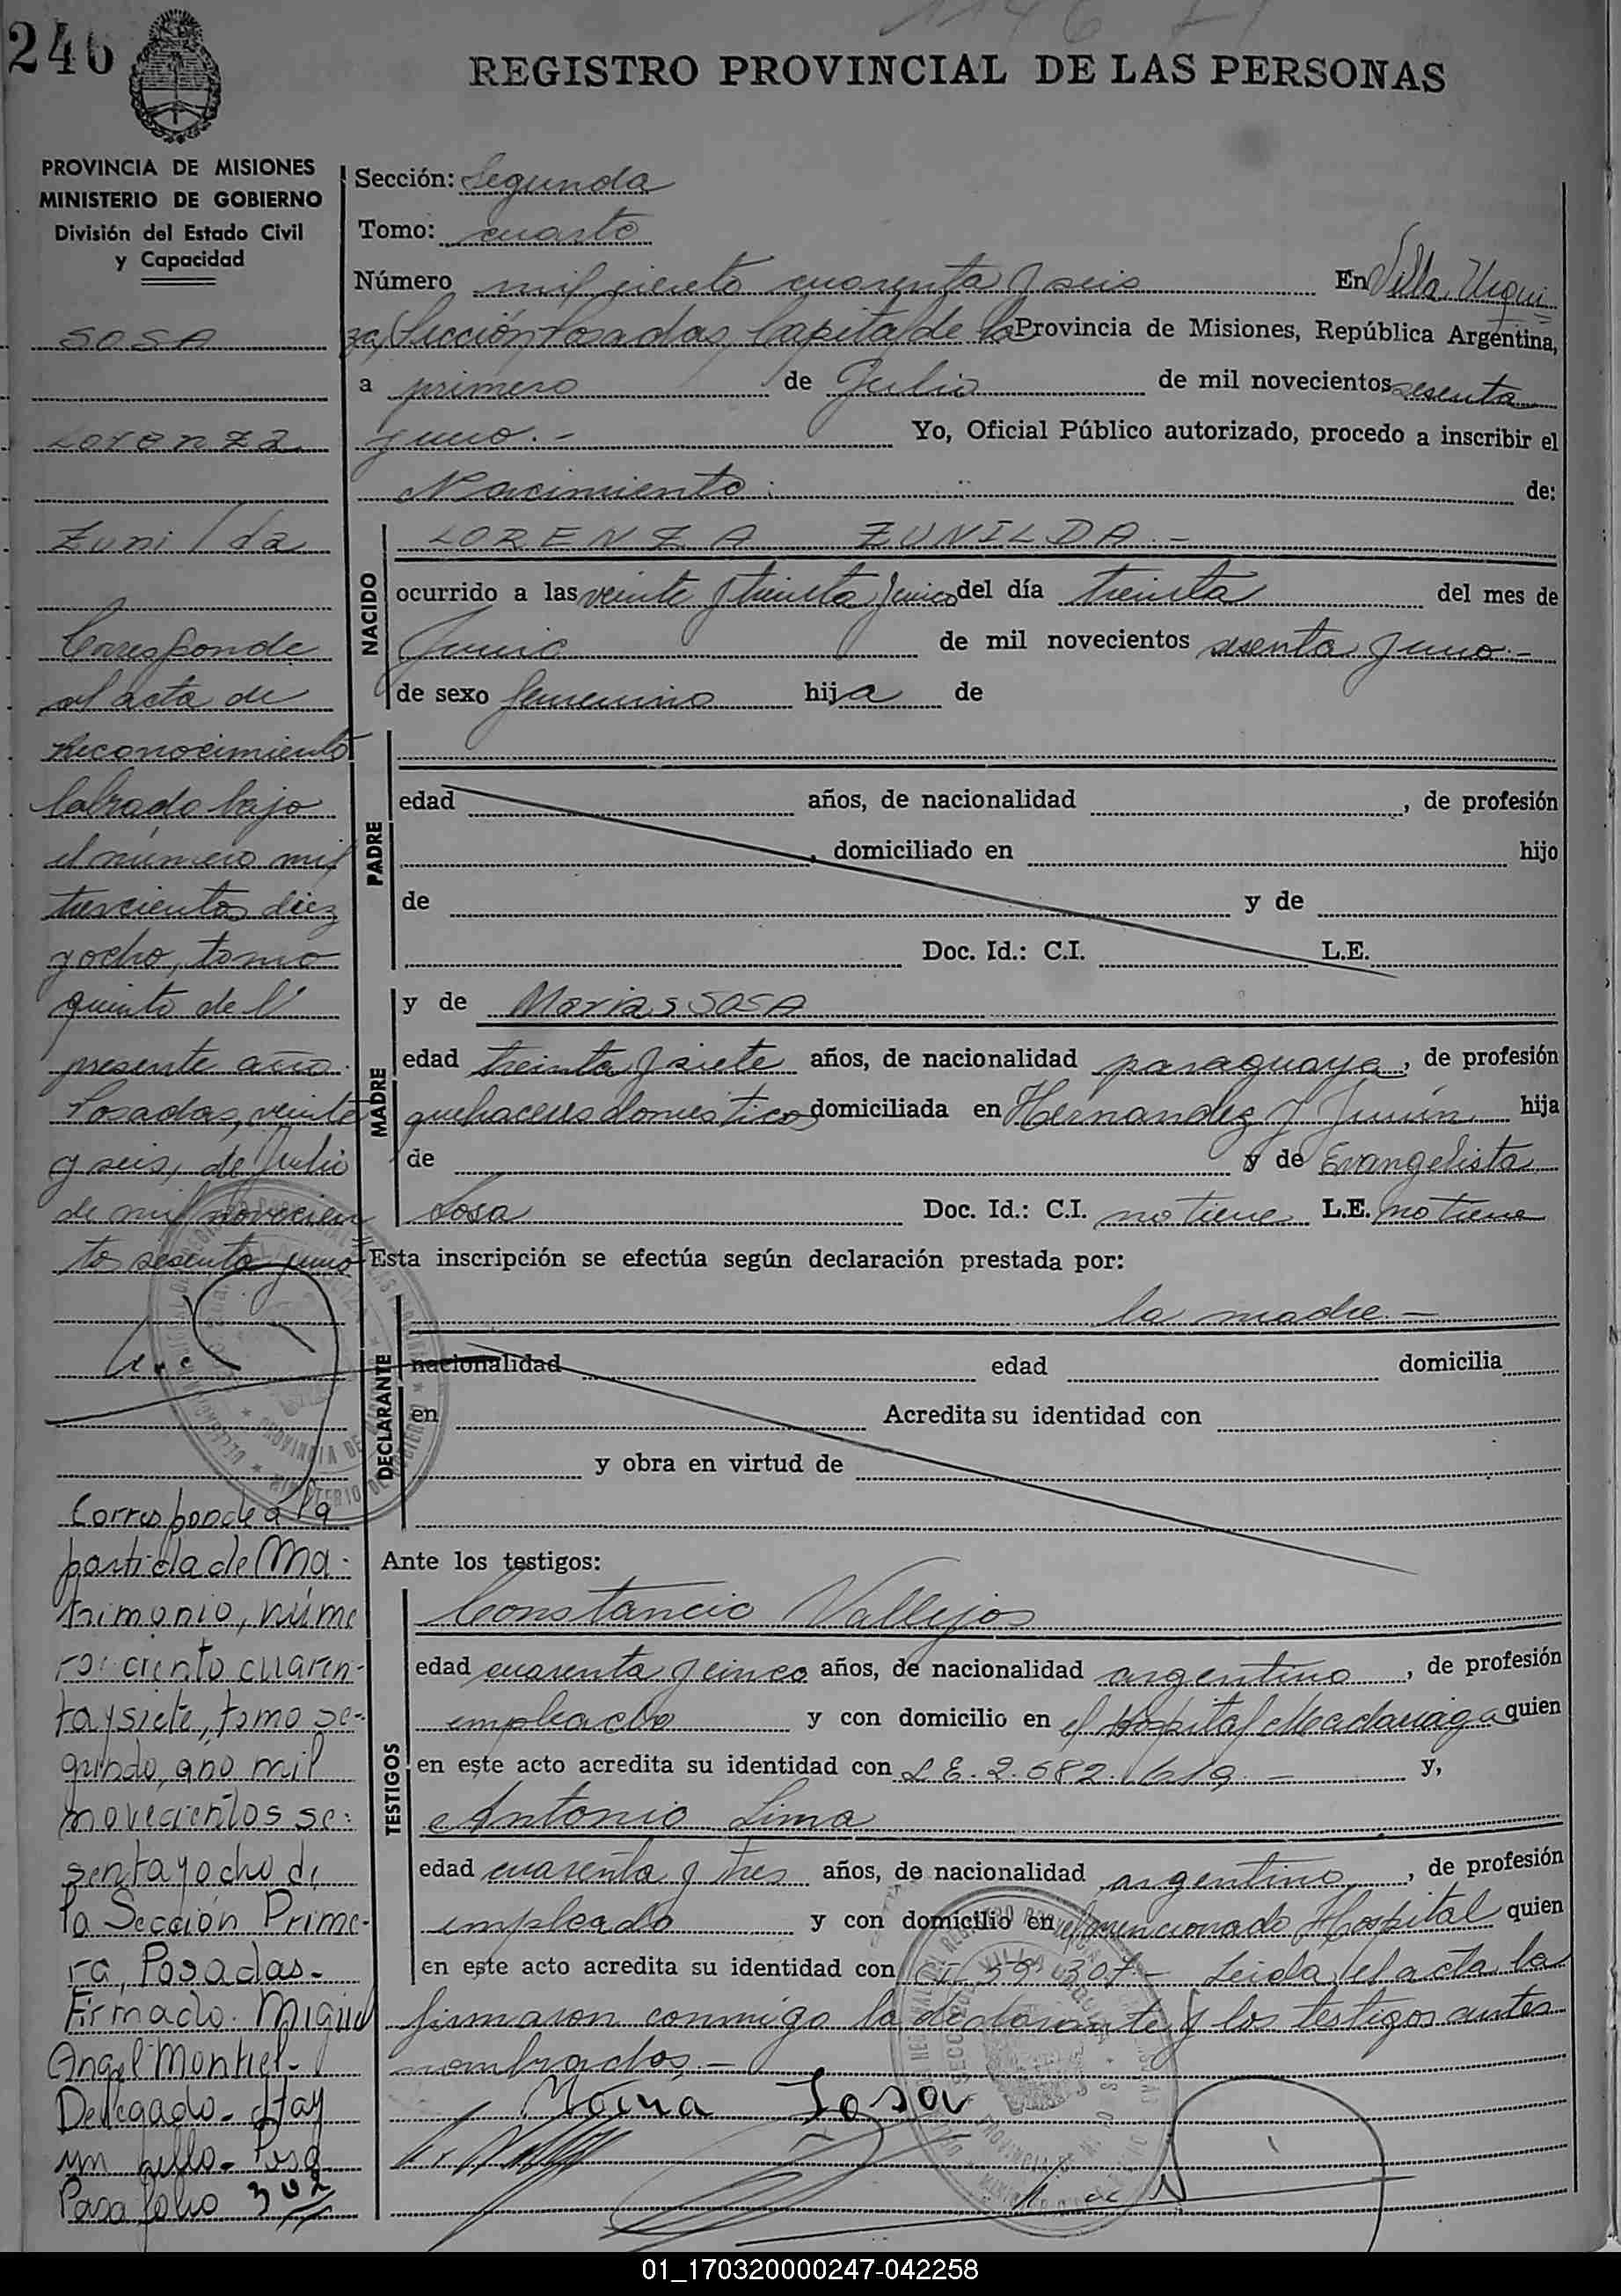 246
REGISTRO PROVINCIAL DE LAS PERSONAS
PROVINCIA DE MISIONES
MINISTERIO DE GOBIERNO
División del Estado Civil
y Capacidad
SOSA
Lorenza
Zunilda
Corresponde
al acta de
Reconocimiento
labrado bajo
el número mil
trescientos diez
y ocho, tomo
quinto del
presente año.
Posadas, veinte
y seis, de Julio
de mil novecien
tos sesenta y uno
Corresponde a la
partida de Ma-
trimonio, núme
ro: ciento cuaren-
ta y siete, tomo se-
gundo, año mil
novecientos se-
senta y ocho de
la Sección Prime-
ra, Posadas-
Firmado. Miguel
Angel Montiel-
Delegado- Hay
un sello-
Pasa folio 302
Sección: Segunda
Tomo: cuarto
Número mil ciento cuarenta y seis En Villa Urqui
za, Sección Posadas, Capital de la Provincia de Misiones, República Argentina,
a primero de Julio de mil novecientos sesenta
y uno.- Yo, Oficial Público autorizado, procedo a inscribir el
Nacimiento de:
NACIDO
LORENZA ZUNILDA.-
ocurrido a las veinte y treinta y cinco del día treinta del mes de
Junio de mil novecientos sesenta y uno.-
de sexo femenino hija de
PADRE
edad años, de nacionalidad , de profesión
, domiciliado en hijo
de y de
Doc. Id.: C.I. L.E.
MADRE
y de Maria SOSA
edad treinta y siete años, de nacionalidad paraguaya, de profesión
quehaceres domesticos domiciliada en Hernandez y Junín hija
de y de Evangelista
Sosa Doc. Id.: C.I. no tiene L.E. no tiene
Esta inscripción se efectúa según declaración prestada por:
DECLARANTE
la madre.-
nacionalidad edad domicilia
en Acredita su identidad con
y obra en virtud de
Ante los testigos:
TESTIGOS
Constancio Vallejos
edad cuarenta y cinco años, de nacionalidad argentino, de profesión
empleado y con domicilio en el Hospital Madariaga quien
en este acto acredita su identidad con L.E. 2.682.619.- y,
Antonio Lima
edad cuarenta y tres años, de nacionalidad argentino, de profesión
empleado y con domicilio en el mencionado Hospital quien
en este acto acredita su identidad con CI. 59.307- Leida el acta la
firmaron conmigo la declarante y los testigos antes
nombrados.-
Maria Sosa
01_170320000247-042258